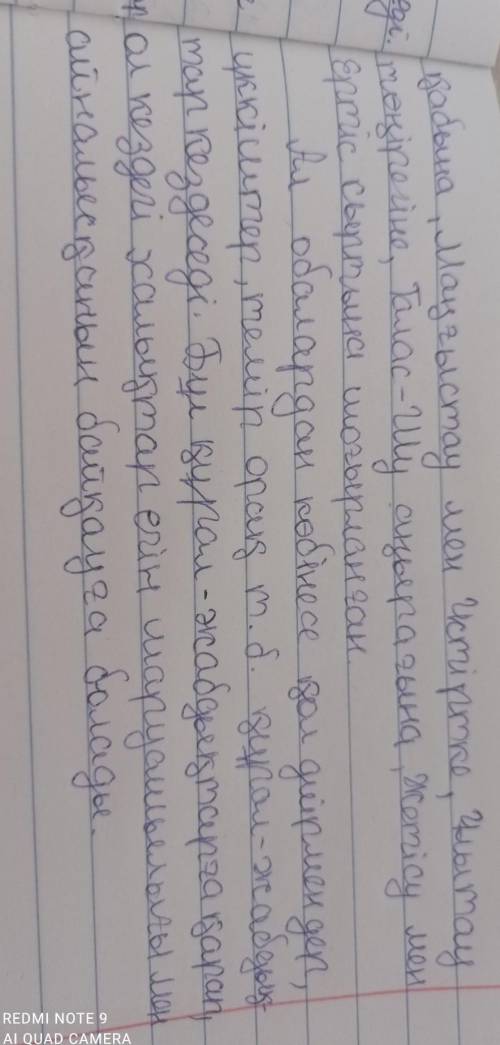 қабына, Маңғыстау мен Үстіртке, Ұлытау
төңірегіне, Талас-Шу аңғарағына, Жетісу мен
Ертіс сыртына шоғырланған.
Ал обалардан көбінесе қол диірмендер,
үккіштер, темір орақ т.б. құрал-жабдық-
тар кездеседі. Бұл құрал-жабдықтарға қарап,
ол кездегі халықтар егін шаруашылығымен
айналысқанын байқауға болады.
REDMI NOTE 9
AI QUAD CAMERA